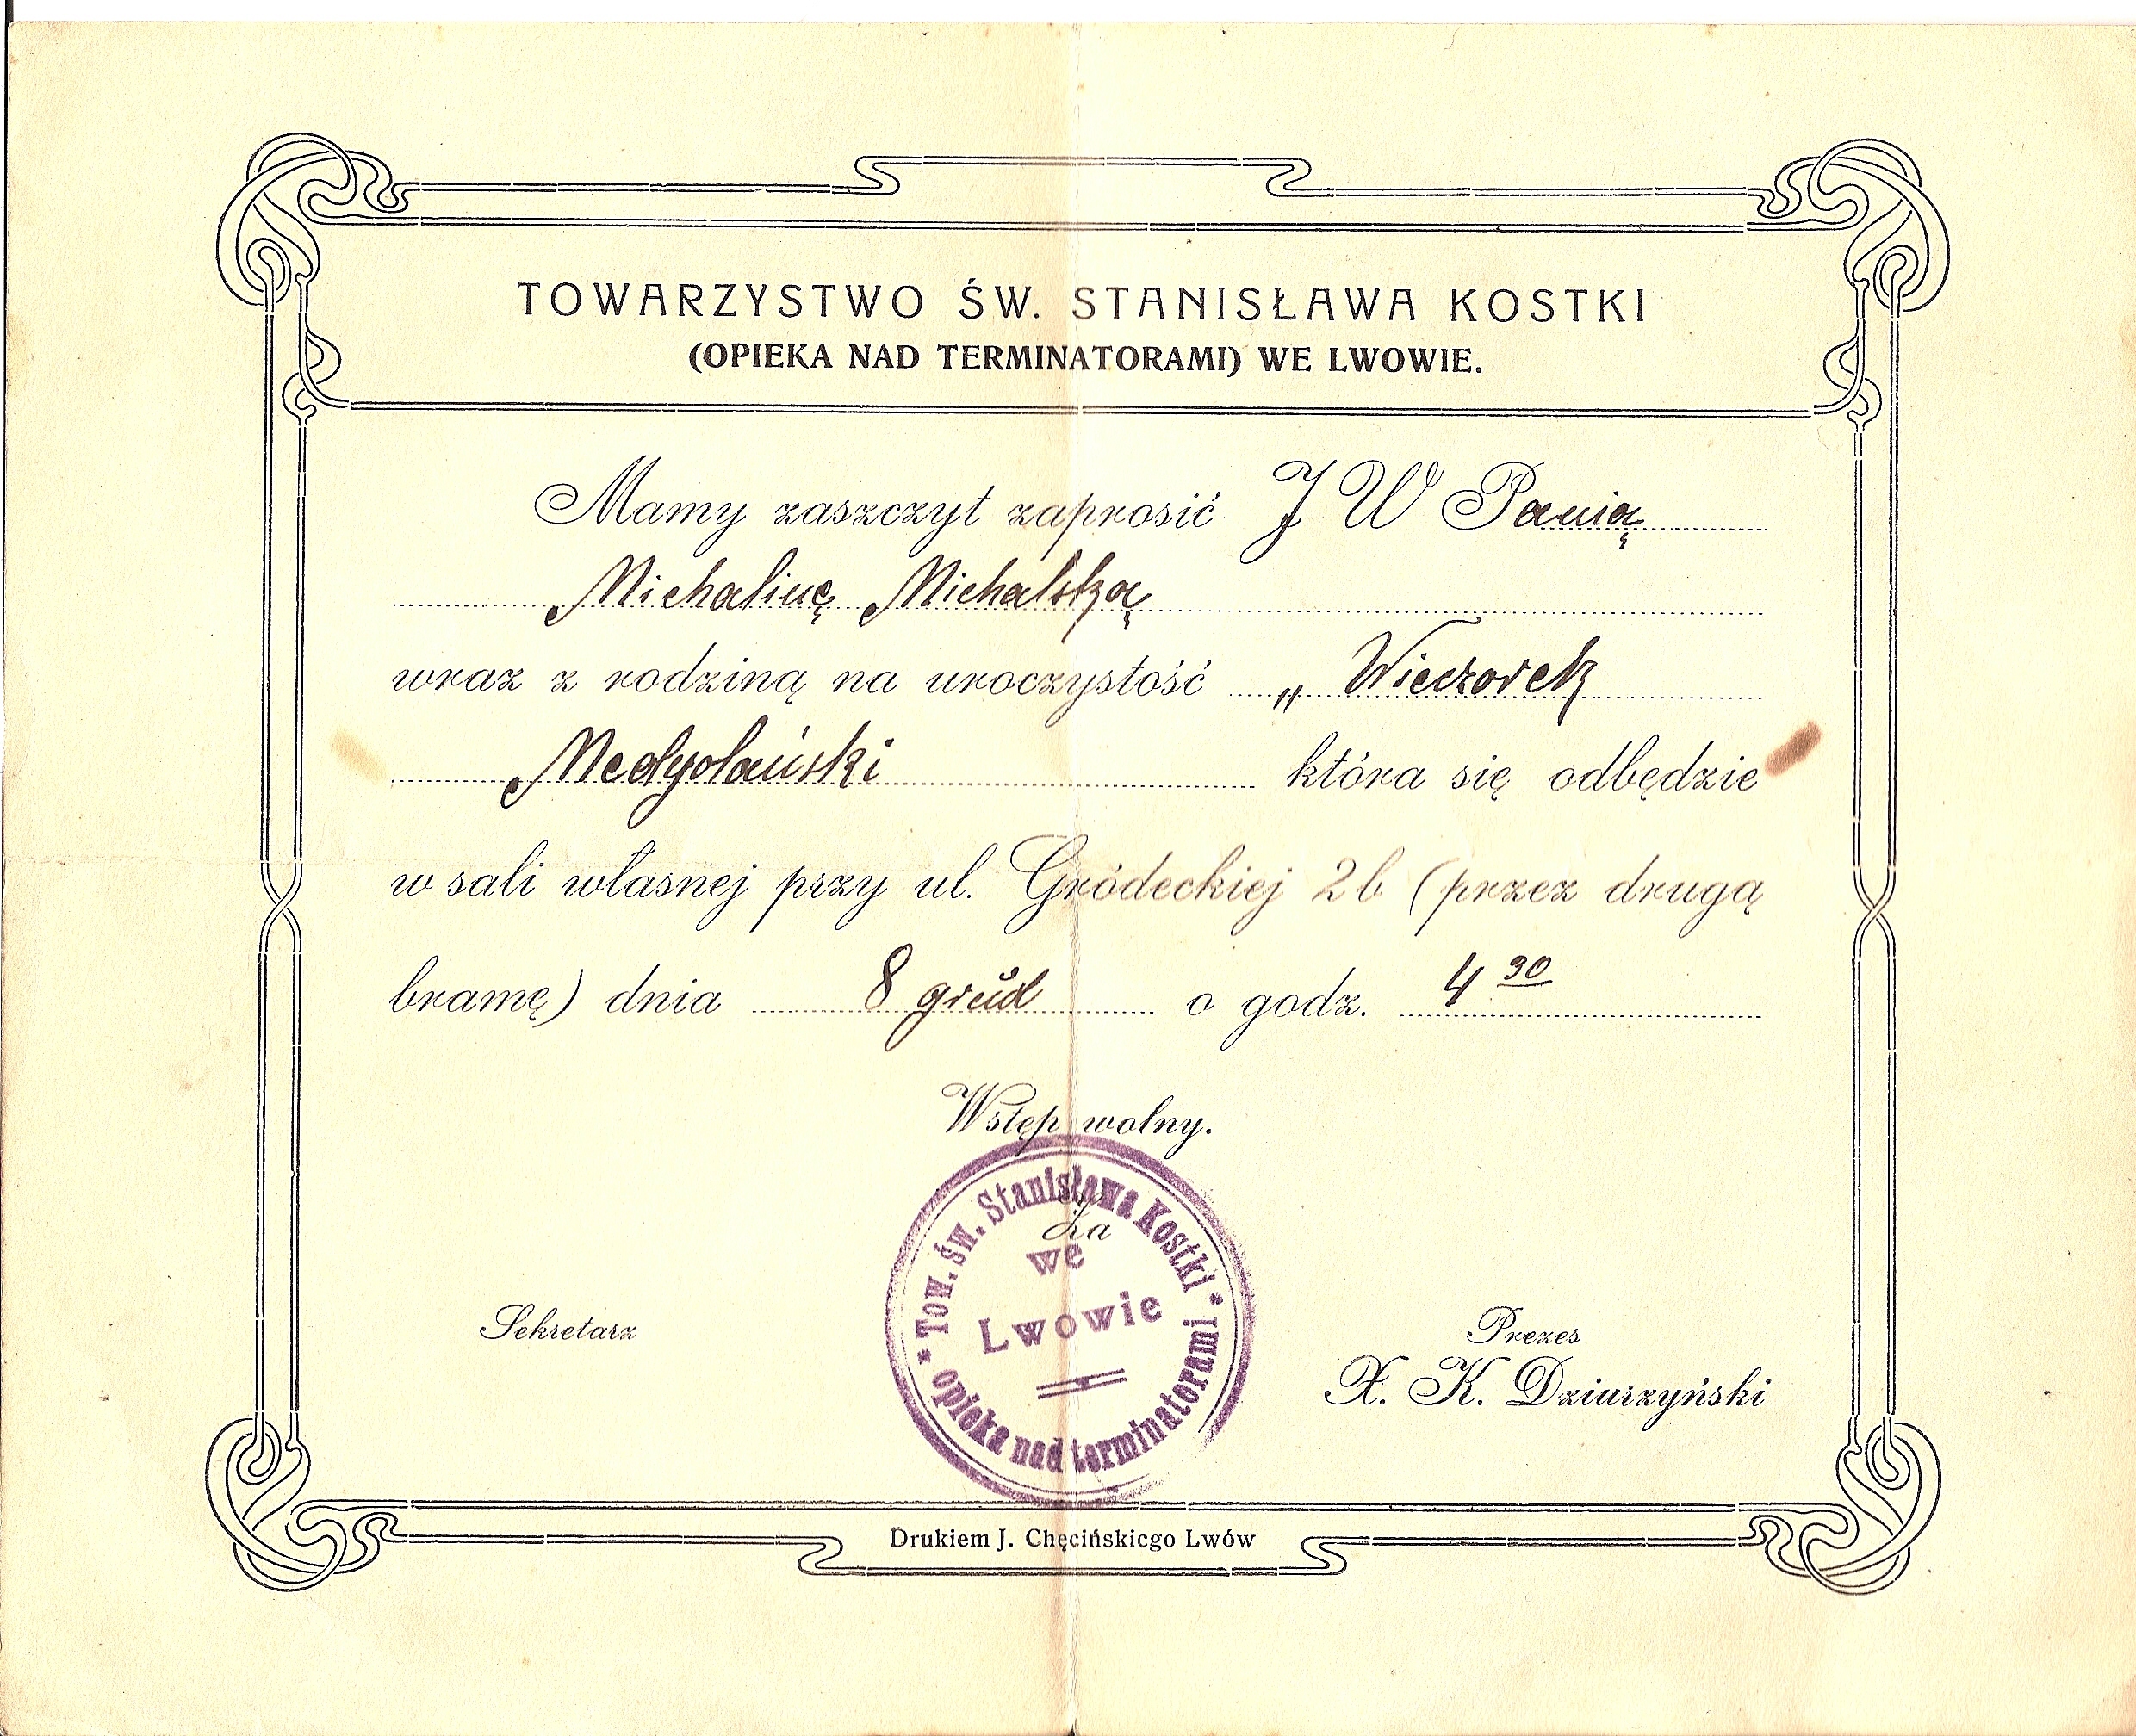 TOWARZYSTWO ŚW. STANISŁAWA KOSTKI
(OPIEKA NAD TERMINATORAMI) WE LWOWIE.
Mamy zaszczyt zaprosić J W Panią
Michalinę Michalską
wraz z rodziną na uroczystość „ Wieczorek
Medyolański która się odbędzie
w sali własnej przy ul. Gródeckiej 2b (przez drugą
bramę) dnia 8 grud o godz. 4 30
Wstęp wolny.
Za
Tow. Św. Stanisława Kostki * opieka nad terminatorami *
we
Lwowie
Sekretarz
Prezes
X. K. Dziurzyński
Drukiem J. Chęcińskiego Lwów